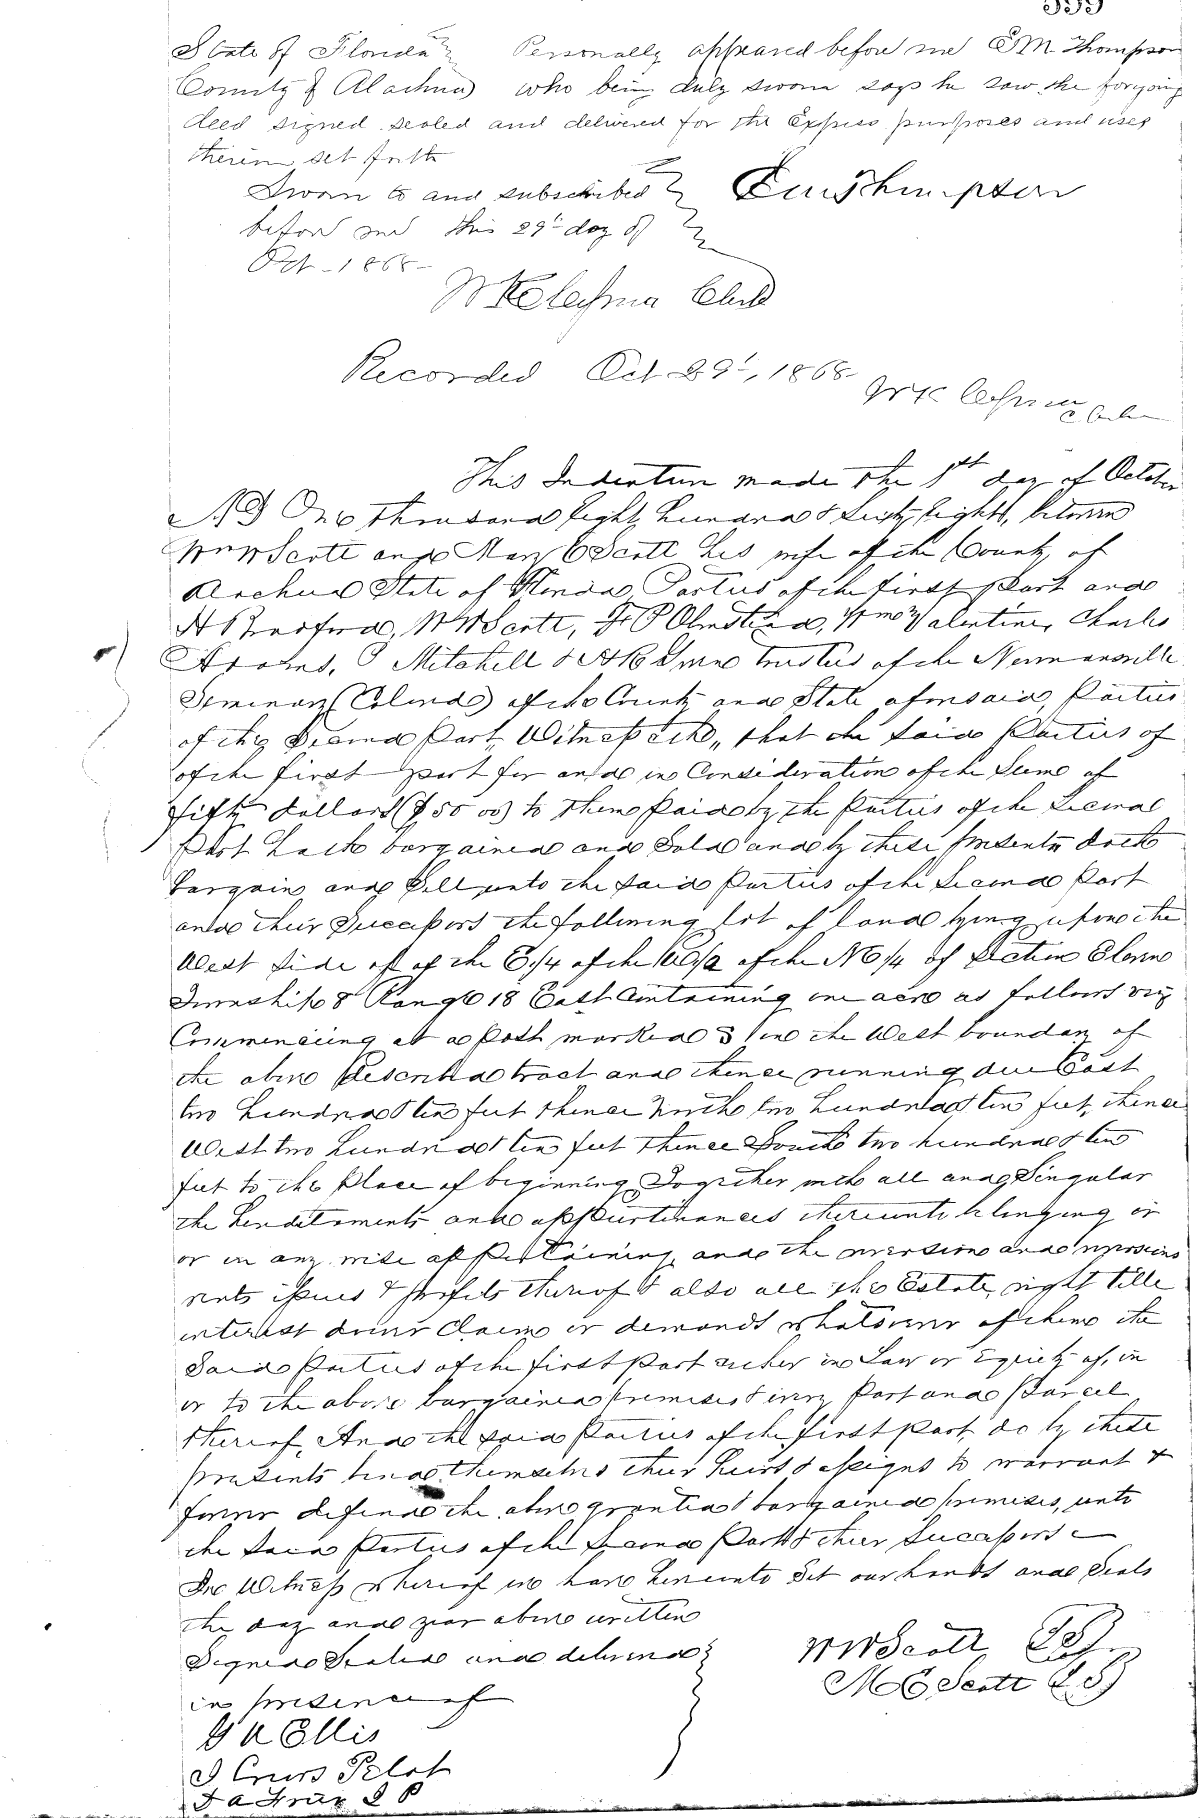 State of Florida Personally appeared before me E M Thompson
County of Alachua who being duly sworn says he saw the forgoing
deed signed sealed and delivered for the Express purposes and uses
therein set forth
Sworn to and subscribed E M Thompson
before me this 29t day of
Oct - 1868 -
W K Cessna Clerk
Recorded Oct 29t, 1868
W K Cessna Clerk
This Indenture made the 1st day of October
AD One thousand Eight hundred & Sixty Eight, between
Wm W Scott and Mary E Scott his wife of the County of
Alachua State of Florida Parties of the first Part and
W W Scott, F P Olmstead, Wm Valentine, Charles
Mitchell & Trustees of the Newnansville
Seminary (Colored) of the County and State aforesaid, Parties
of the Second Part, Witnesseth, that the Said Parties of
of the first part for and in Consideration of the Sum of
fifty dollars ($50 00) to them Paid by the Parties of the Second
Part hath bargained and Sold and by these presents doth
bargain and Sell unto the Said Parties of the Second Part
and their Successors the following lot of land lying upon the
West Side of the E 1/4 of the 1/2 of the NE 1/4 of Section Eleven
Township 8 Range 18 East Containing one acre as follows viz
Commencing at a Post marked in the West boundary of
the above described tract and thence running due East
two hundred & ten feet thence North two hundred & ten feet, thence
West two hundred & ten feet thence South two hundred & ten
feet to the Place of beginning Together with all and Singular
the hereditaments and appurtenances thereunto belonging or
or in any wise appertaining and the reversion and reversions
rents issues & profits thereof & also all the Estate, right title
interest dower Claim or demands whatsoever of them the
Said Parties of the first Part either in Law or Equity of, in
or to the above bargained premises & every Part and Parcel
thereof, And the said Parties of the first part do by these
presents bind themselves their heirs & assigns to warrant &
forever defend the above granted & bargained premises, unto
the Said Parties of the Second Part & their Successors
In Witness whereof we have hereunto Set our hands and Seals
the day and year above written
Signed Sealed and delivered W W Scott LS
in presence of M E Scott LS
Ellis